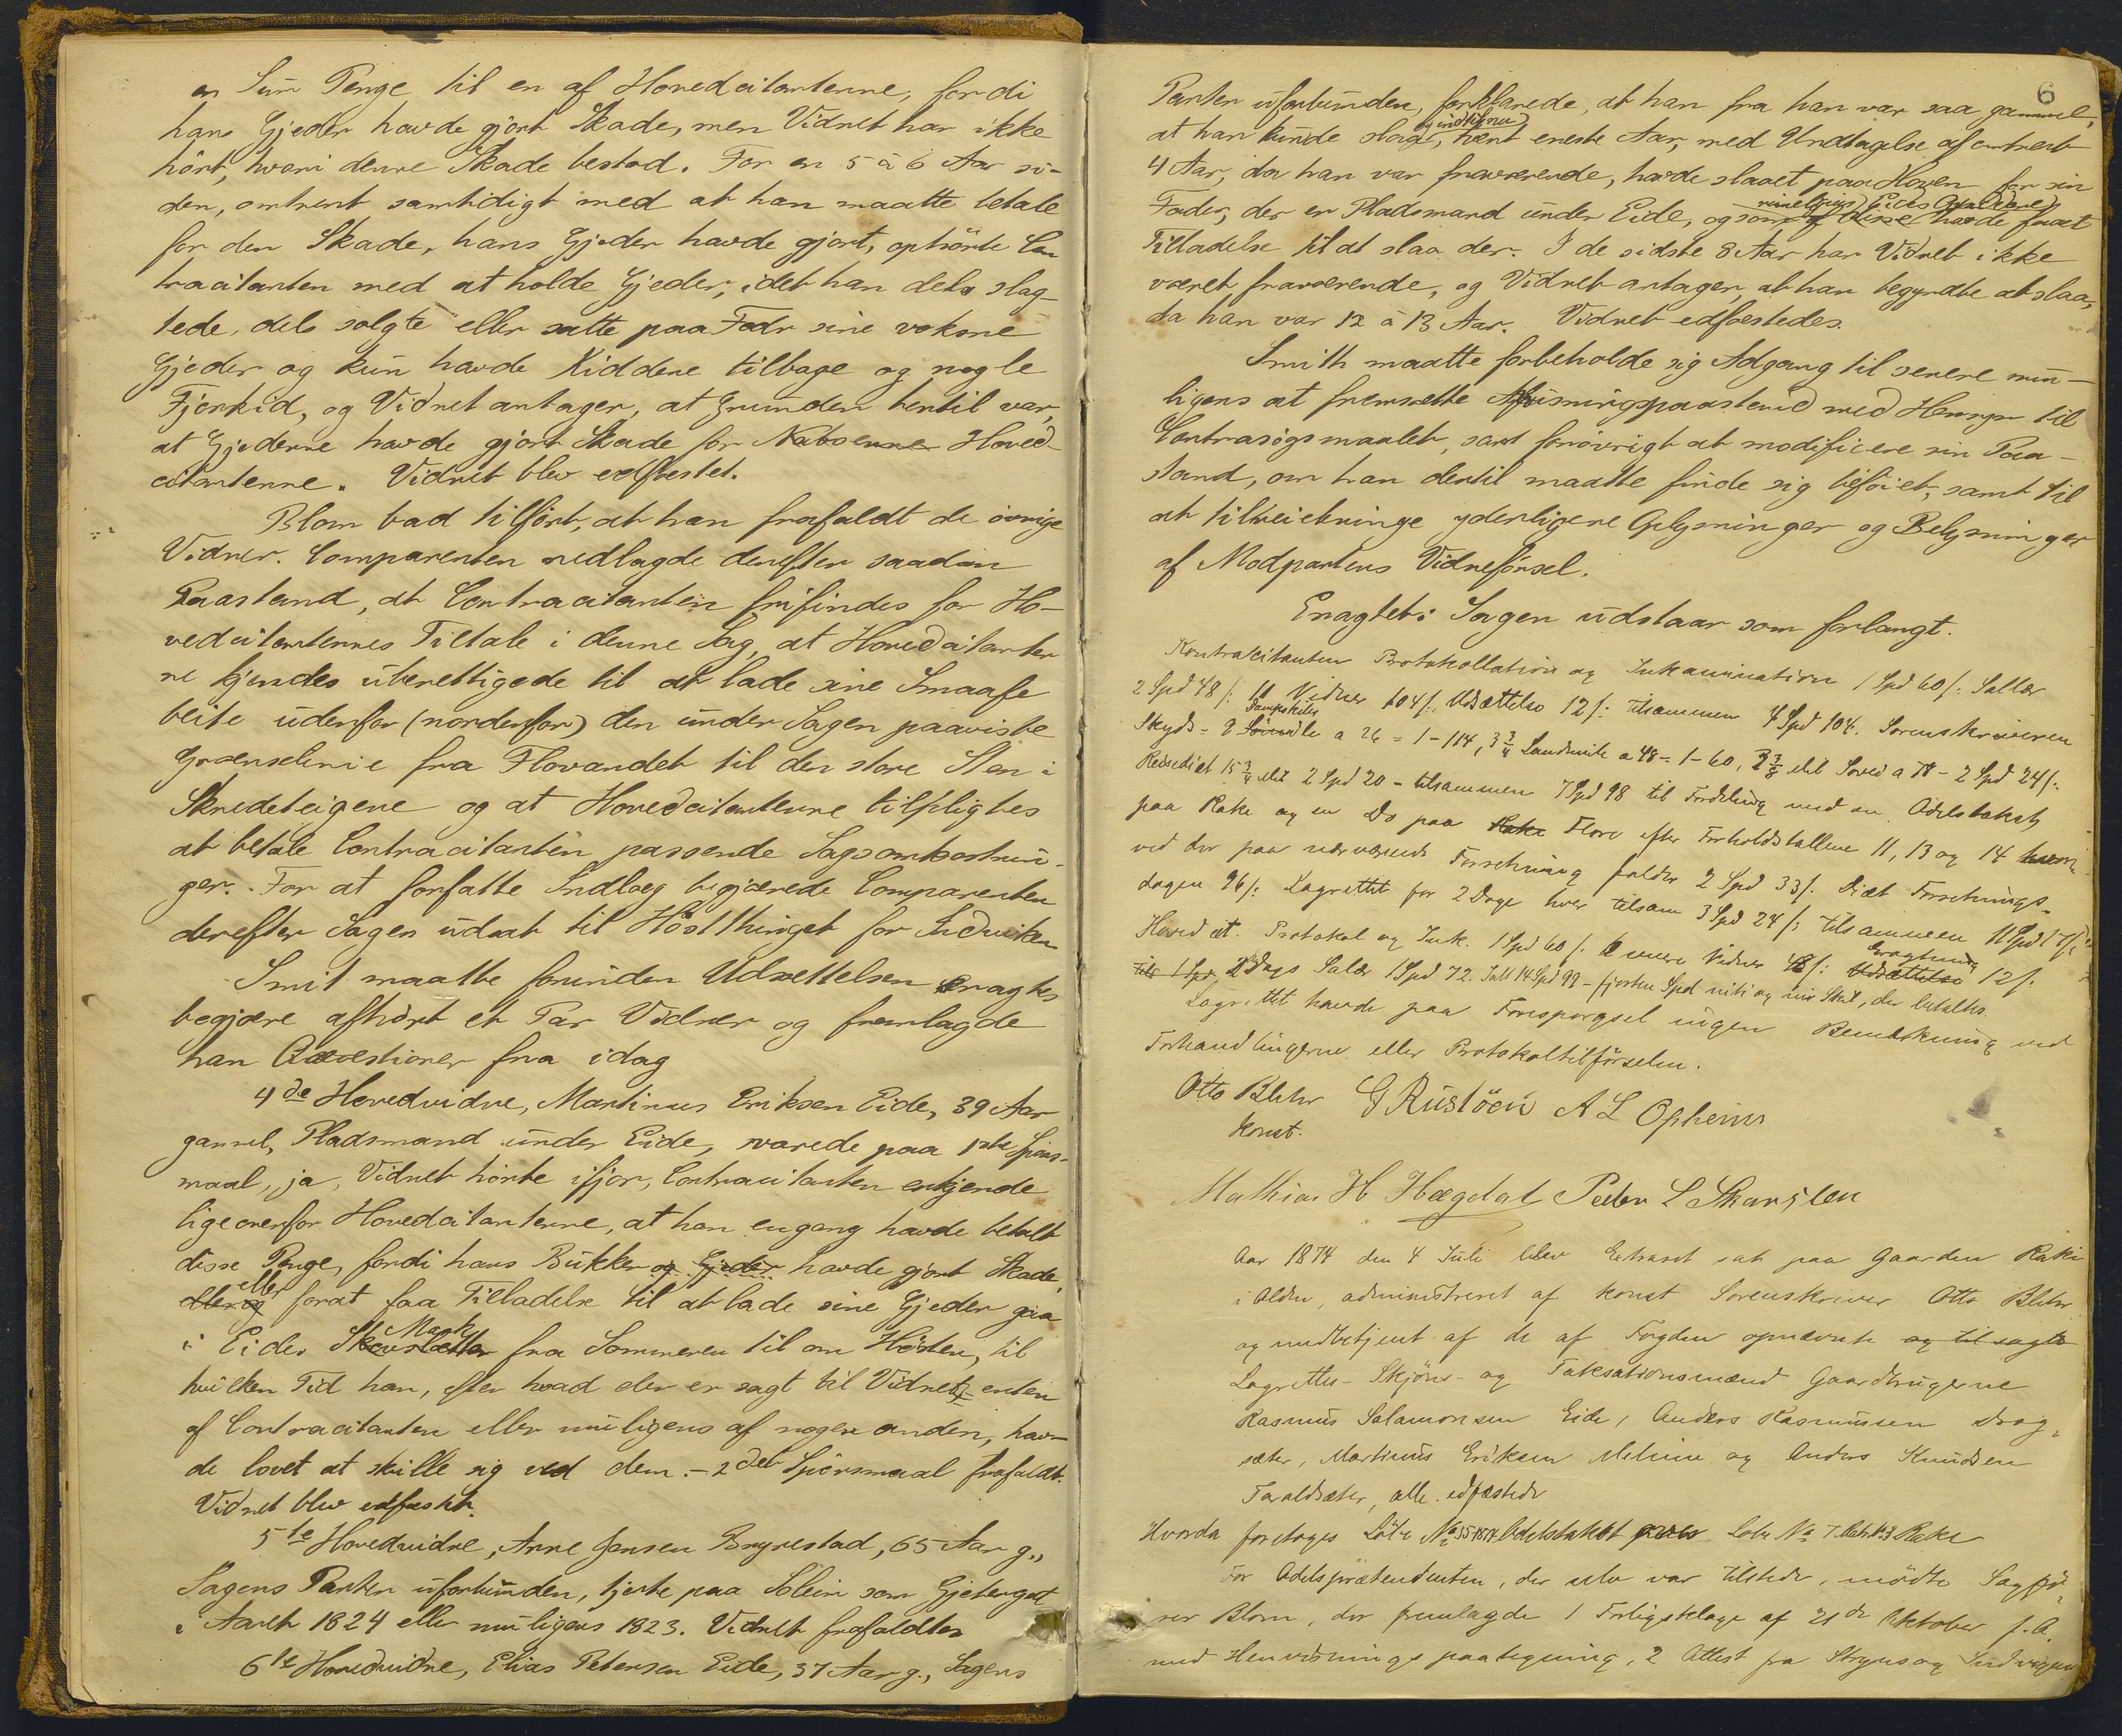 en Sum Penge til en af Hovedcitanterne, fordi
hans Gjeder havde gjort Skade, men Vidnet har ikke
hørt, hvori denne Skade bestod. For en 5 à 6 Aar si-
den, omtrent samtidigt med at han maatte betale
for den Skade, hans Gjeder havde gjort, ophörte Con
tracitanten med at holde Gjeder, idet han dels slag-
tede, dels solgte eller satte paa Foder sine voksne
Gjeder og kun havde Kiddene tilbage og nogle
Fjorkid, og Vidnet antager, at Grunden hertil var,
at Gjederne havde gjort Skade for Naboerne Hoved-
citanterne. Vidnet blev edfæstet.
Blom bad tilført, at han frafaldt de övrige
Vidner. Comparenten nedlagde derefter saadan
Paastand, at Contracitanten frifindes for Ho-
vedcitanternes Tiltale i denne Sag, at Hovedcitanter
ne kjendes uberettigede til at lade sine Smaafe
beite udenfor (nordenfor) den under Sagen paaviste
Grænselinie fra Flovandet til den store Sten i
Skredeteigene og at Hovedcitanterne tilpligtes
at betale Contracitanten passende Sagsomkostnin-
ger. For at forfatte Indlæg begjærede Comparenten
derefter Sagen udsat til Høstthinget for Indviken
Smit maatte forinden Udsættelsen eragtes
begjære afhört et Par Vidner og fremlagde
han Qvæstioner fra idag
4de Hovedvidne, Martinus Eriksen Eide, 39 Aar
gammel, Pladsmand under Eide, svarede paa 1ste Spørs-
maal, ja, Vidnet hörte ifjor, Contracitanten erkjende
ligeoverfor Hovedcitanterne, at han engang havde betalt
disse Penge, fordi hans Bukke og Gjeder havde gjort Skade,
eller
eller og forat faa Tilladelse til at lade sine Gjeder gaa
Mark
i Eides fra Sommeren til om Hösten, til
hvilken Tid han, efter hvad der er sagt til Vidnet, enten
af Contracitanten eller muligens af nogen anden, hav-
de lovet at skille sig ved dem. - 2det Spörsmaal frafaldt.
Vidnet blev edfæstet.
5te Hovedvidne, Arne Jensen Bryrestad, 65 Aar g.,
Sagens Parter uforbunden, tjente paa Solein som Gjetergut
i Aaret 1824 eller muligens 1823. Vidnet frafaldtes
6te Hovedvidne, Elias Petersen Eide, 37 Aar g., Sagens
6
Parter uforbunden, forklarede, at han fra han var saa gammel,
indtil nu
at han kunde slaa, hvert eneste Aar, med Undtagelse af omtrent
4 Aar, da han var fraværende, havde slaaet paa Hoven for sin
rimeligvis Eides Opsiddere
Fader, der er Pladsmand under Eide, og som af disse havde faaet
Tilladelse til at slaa der. I de sidste 8 Aar har Vidnet ikke
været fraværende, og Vidnet antager, at han begyndte at slaa,
da han var 12 à 13 Aar. Vidnet edfæstedes.
Smith maatte forbeholde sig Adgang til senere mu-
ligens at fremsætte Afvisningspaastand med Hensyn til
Contrasögsmaalet, samt forövrigt at modificere sin Paa-
stand, om han dertil maatte finde sig beföiet, samt til
at tilveiebringe yderligere Oplysninger og Belysninger
af Modpartens Vidneförsel.
Eragtet: Sagen udstaar som forlangt.
Kontracitanten Protokollation og Inkamination 1 Spd 60 /: Sallær
2 Spd 48 /: Vidner 104 /: Udsættelse 12 /: tilsammen 4 Spd 104. Sorenskriveren
Skyds - 2 a 26 = 1 - 114, 3 3/4 Landmile a 48 = 1 - 60, - 2 Spd 24 /:
Reisediæt 15 3/4 Mil 2 Spd 20 - tilsammen 7 Spd 98 til Fordeling med en Odelstakst
paa Rake og en Do paa Rake Flore efter Forholdstallene 11, 13 og 14
ved der paa nærværende Forretning falder 2 Spd 33 /: Diæt Forretnings-
dagen 96 /: Lagrettet for 2 Dage hver tilsam 3 Spd 24 /: tilsammen 11 Spd
Hovedcit. Protokol og Ink. 1 Spd 60 /: Vidner 48 /: Eragtning
Udsættelse 12 /:
2 Dags Salær 1 Spd 72. Talt 14 Spd 99 - fjorten Spd niti og ni Skil, der betaltes.
Lagrettet havde paa Forespørgsel ingen Bemærkning ved
Forhandlingerne eller Protokoltilförselen.
Otto Blehr G Rustöen A L Opheim
konst.
Mathias H Hægdal Peder L Skarsten
Aar 1874 den 4 Juli blev Extraret sat paa Gaarden Rake
i Olden, administreret af konst Sorenskriver Otto Blehr
og medbetjent af de af Fogden opnævnte og tilsagte
Lagrettes- Skjöns- og Taksationsmænd Gaardbrugerne
Rasmus Salamonsen Eide, Anders Rasmussen Drag-
sæter, Martinus Eriksen Melheim og Anders Knudsen
Taraldsæter, alle edfæstede
Hvorda foretoges Odelstakst Lobe No 7. Rake
For Odelsprætendenten, der selv var tilstede, mödte Sagfö-
rer Blom, der fremlagde 1 Forligsklage af 21de Oktober f. A.
med Henvisningspaategning, 2 Attest fra Stryns og Indvigens